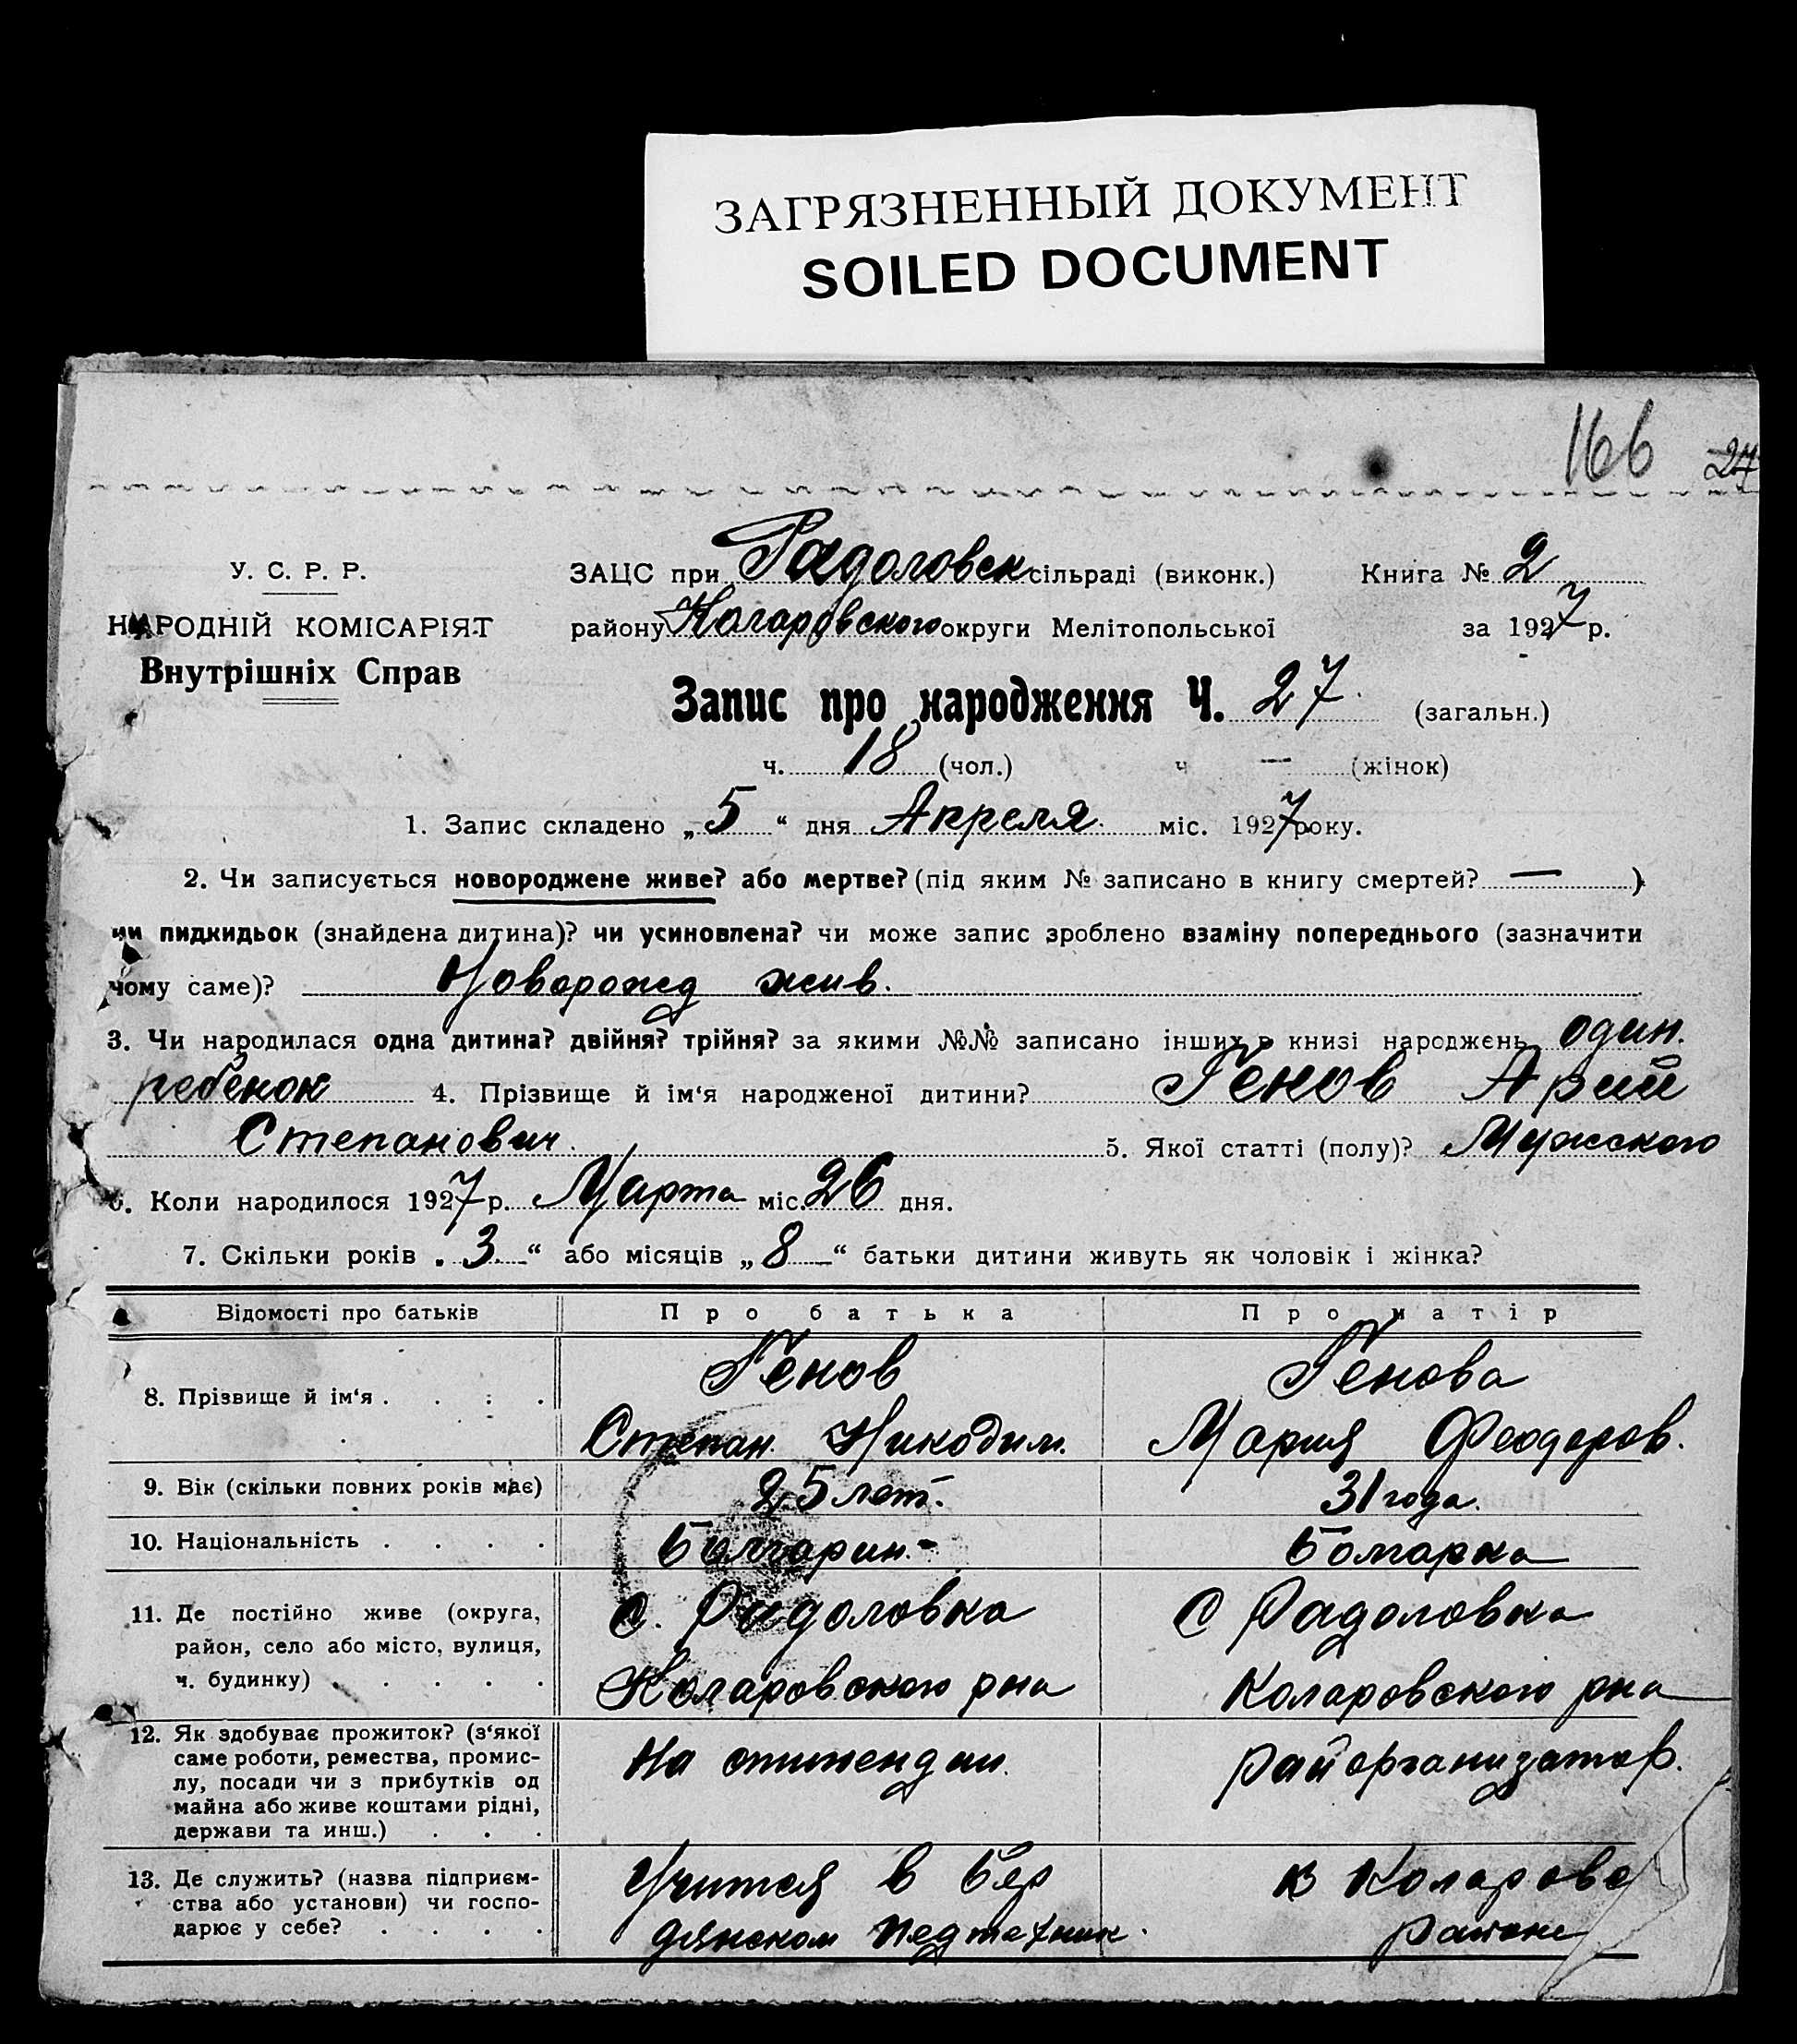 ЗАГРЯЗНЕННЫЙ ДОКУМЕНТ
SOILED DOCUMENT
166 27
У. С. Р. Р.
НАРОДНІЙ КОМІСАРІЯТ
Внутрішніх Справ
ЗАЦС при Радоловск сільраді (виконк.) Книга № 2
району Коларовского округи Мелітопольської за 1927 р.
Запис про народження Ч. 27 (загальн.)
ч. 18 (чол.) ч — (жінок)
1. Запис складено „5“ дня Апреля міс. 1927 року.
2. Чи записується новороджене живе? або мертве? (під яким № записано в книгу смертей? — )
чи пидкидьок (знайдена дитина)? чи усиновлена? чи може запис зроблено взаміну попереднього (зазначити
чому саме)? Новорожд жив.
3. Чи народилася одна дитина? двійня? трійня? за якими №№ записано інших в книзі народжень один.
ребенок 4. Прізвище й ім‘я народженої дитини? Генов Арий
Степанович. 5. Якої статті (полу)? Мужского
6. Коли народилося 1927 р. Марта міс. 26 дня.
7. Скільки років „3“ або місяців „8“ батьки дитини живуть як чоловік і жінка?
Відомості про батьків Про батька Про матір
8. Прізвище й ім‘я . . . . Генов Генова
Степан Никодим. Мария Феодоров.
9. Вік (скільки повних років має) 25 лет. 31 года.
10. Національність . . . . Болгарин.- Болгарка
11. Де постійно живе (округа, район, село або місто, вулиця, ч. будинку) . . . . .
с. Радоловка С Радоловка
Коларовского рна Коларовского рна
12. Як здобуває прожиток? (з‘якої саме роботи, ремества, промис-
лу, посади чи з прибутків од
майна або живе коштами рідні,
держави та инш.) . . .
На стипендии. райорганизатор.
13. Де служить? (назва підприєм-
ства або установи) чи госпо-
дарює у себе? . . . .
Учится в Бер в Коларовс
дянском педтехник. районе